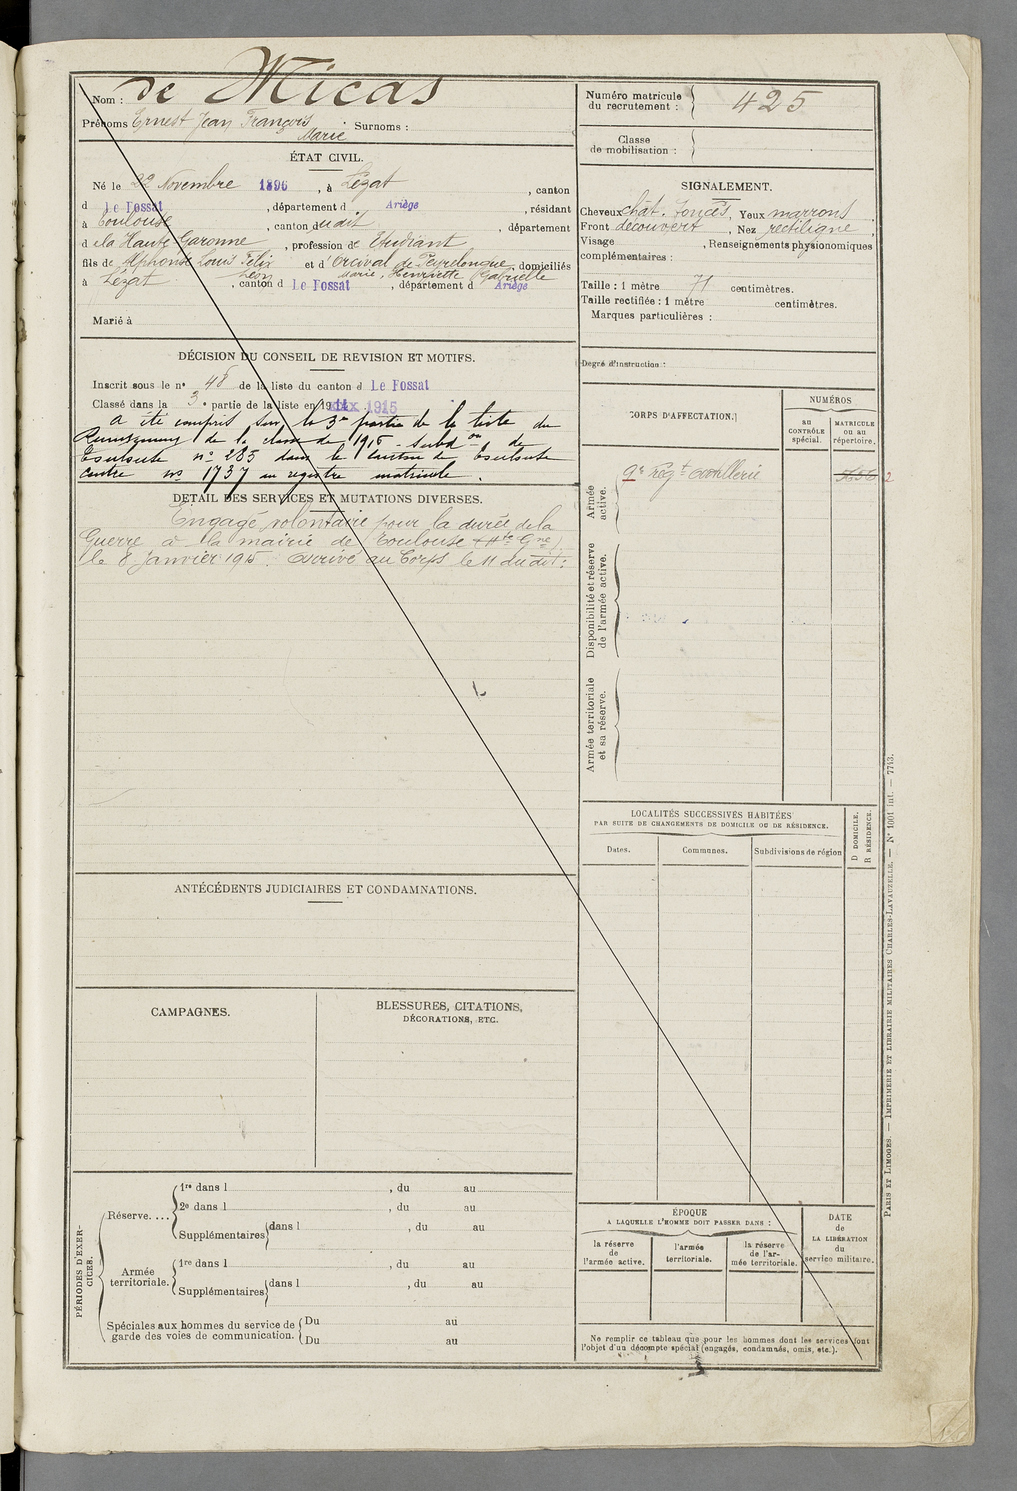 Nom : de Micas
Prénoms Ernest Jean François Marie. Surnoms :
ÉTAT CIVIL.
Né le 22 Novembre 1896, à Lézat, canton
d Le Fossat, département d Ariège, résidant
à Toulouse, canton dudit, département
d e la Haute Garonne, profession de Etudiant
fils de Alphonse Louis Félix Léon et d'Orcival de Peyrelongue Marie Henriette Gabrielle, domiciliés
à Lézat, canton d Le Fossat, département d Ariège
Marié à
DÉCISION DU CONSEIL DE REVISION ET MOTIFS.
Inscrit sous le n° 48 de la liste du canton d Le Fossat
Classé dans la 3e partie de la liste en 1915
A été compris sur la 3e partie de la liste du
Recensement de la classe de 1915 - subdon de
Toulouse n° 285 dans le canton de Toulouse
centre no 1737 au registre matricule.
DÉTAIL DES SERVICES ET MUTATIONS DIVERSES.
Engagé volontaire pour la durée de la
Guerre à la mairie de Toulouse (Hte Gne)
le 8 Janvier 1915. Arrivé au Corps le 11 dudit :
ANTÉCÉDENTS JUDICIAIRES ET CONDAMNATIONS.
CAMPAGNES.
BLESSURES, CITATIONS,
DÉCORATIONS, ETC.
PÉRIODES D'EXERCICES.
Réserve....
1re dans l , du au
2e dans l , du au
Supplémentaires dans l , du au
Armée territoriale.
1re dans l , du au
Supplémentaires dans l , du au
Spéciales aux hommes du service de garde des voies de communication.
Du au
Du au
Numéro matricule du recrutement : 425
Classe de mobilisation :
SIGNALEMENT.
Cheveux chât. foncés, Yeux marrons
Front découvert, Nez rectiligne
Visage , Renseignements physionomiques
complémentaires :
Taille : 1 mètre 71 centimètres.
Taille rectifiée : 1 mètre centimètres.
Marques particulières :
Degré d'instruction :
CORPS D'AFFECTATION.
NUMÉROS
au CONTRÔLE spécial.
MATRICULE ou au répertoire.
Armée active.
9e Régt Artillerie
2
Disponibilité et réserve de l'armée active.
Armée territoriale et sa réserve.
LOCALITÉS SUCCESSIVES HABITÉES
PAR SUITE DE CHANGEMENTS DE DOMICILE OU DE RÉSIDENCE.
Dates.
Communes.
Subdivisions de région
D DOMICILE.
R RÉSIDENCE.
ÉPOQUE
A LAQUELLE L'HOMME DOIT PASSER DANS :
la réserve de l'armée active.
l'armée territoriale.
la réserve de l'armée territoriale.
DATE de LA LIBÉRATION du service militaire.
Ne remplir ce tableau que pour les hommes dont les services font
l'objet d'un décompte spécial (engagés, condamnés, omis, etc.).
PARIS ET LIMOGES. — IMPRIMERIE ET LIBRAIRIE MILITAIRES CHARLES-LAVAUZELLE. — N° 1001 int. — 7743.